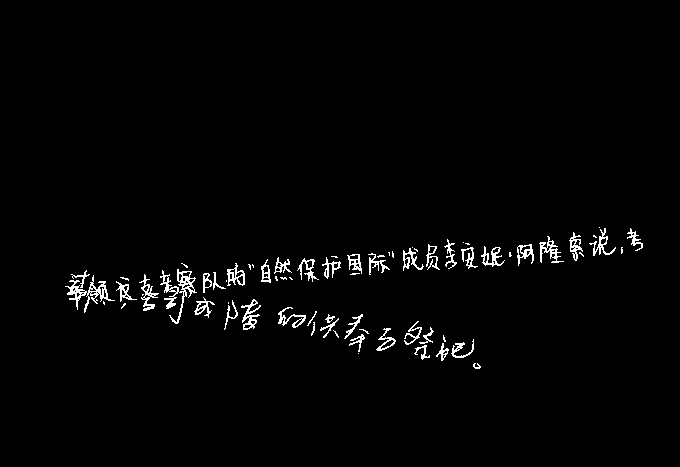 率领这喜考察队的"自然保护国际"成员李安妮·阿隆索说,考
成隍的供奉与祭祀。